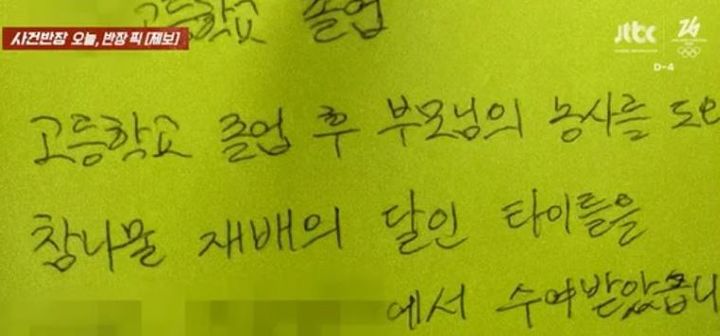 사건반장 오늘, 반장 픽 [제보]
jtbc
D-4
고등학교 졸업
고등학교 졸업 후 부모님의 농사를
참나물 재배의 달인 타이틀을
에서 수여받았습니